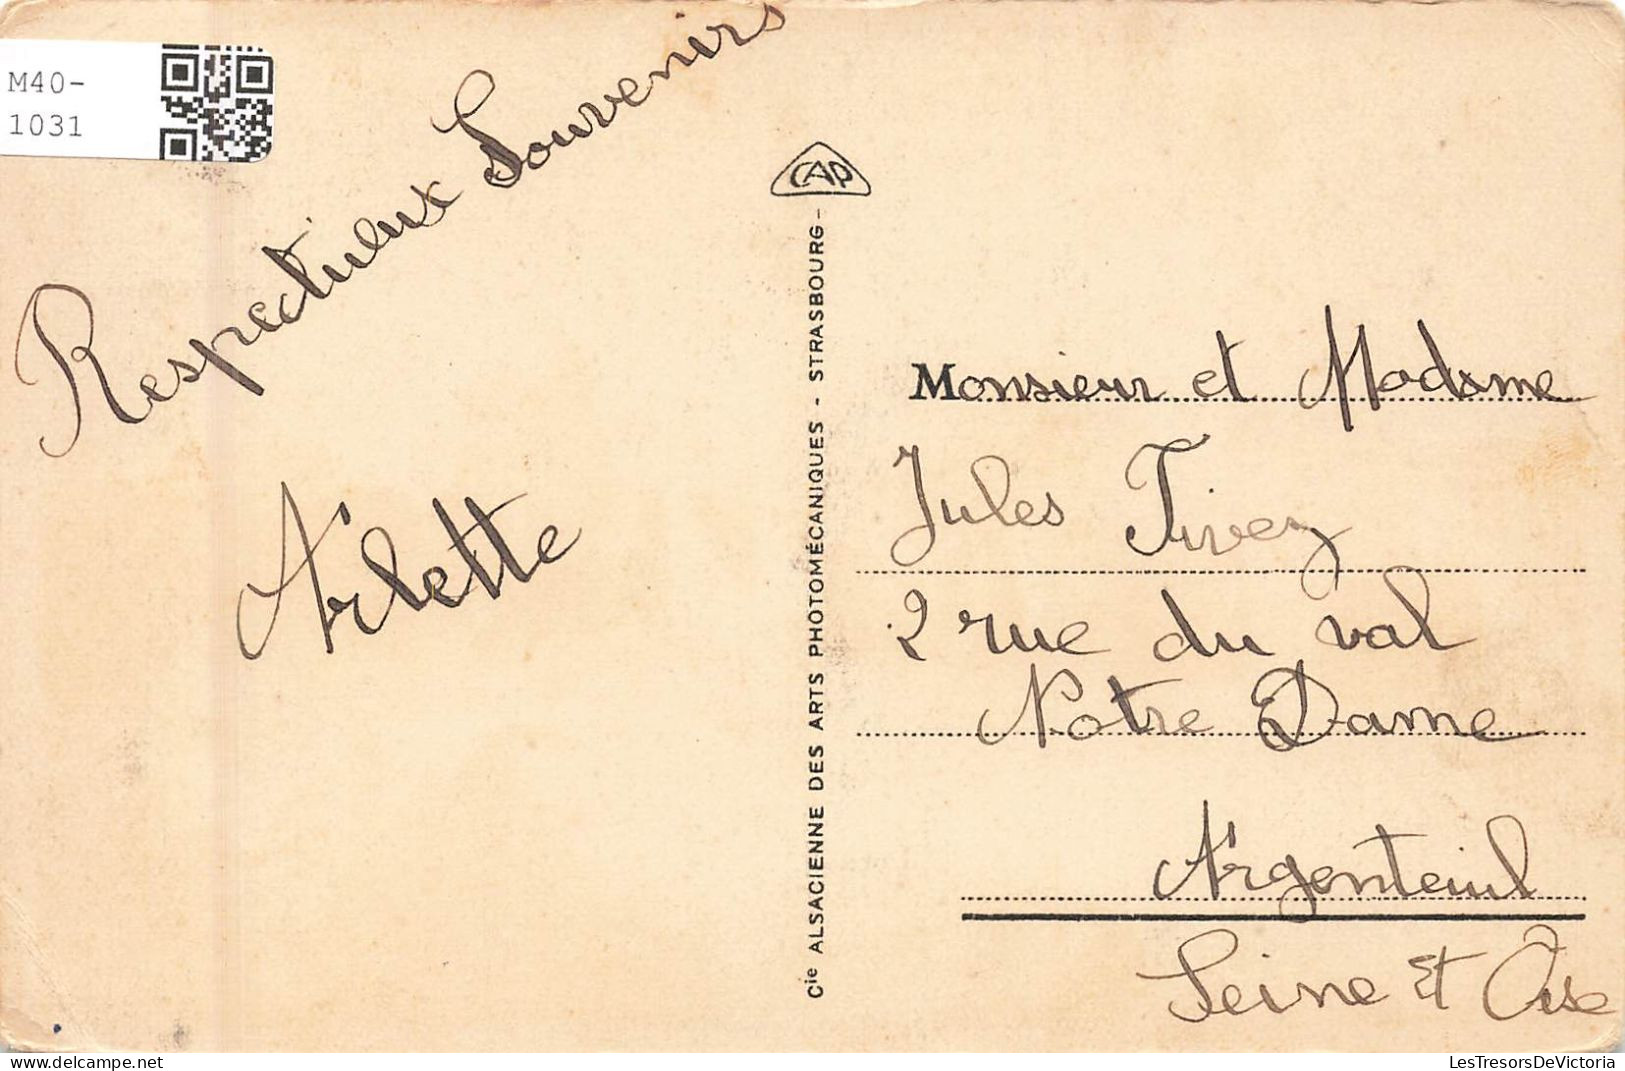 M40-
1031
Respectueux Souvenirs
Arlette
CAP
Cie ALSACIENNE DES ARTS PHOTOMÉCANIQUES - STRASBOURG -
Monsieur et Madame
Jules
2 rue du val
Notre Dame
Argenteuil
Seine et Oise
LesTresorsDeVictoria